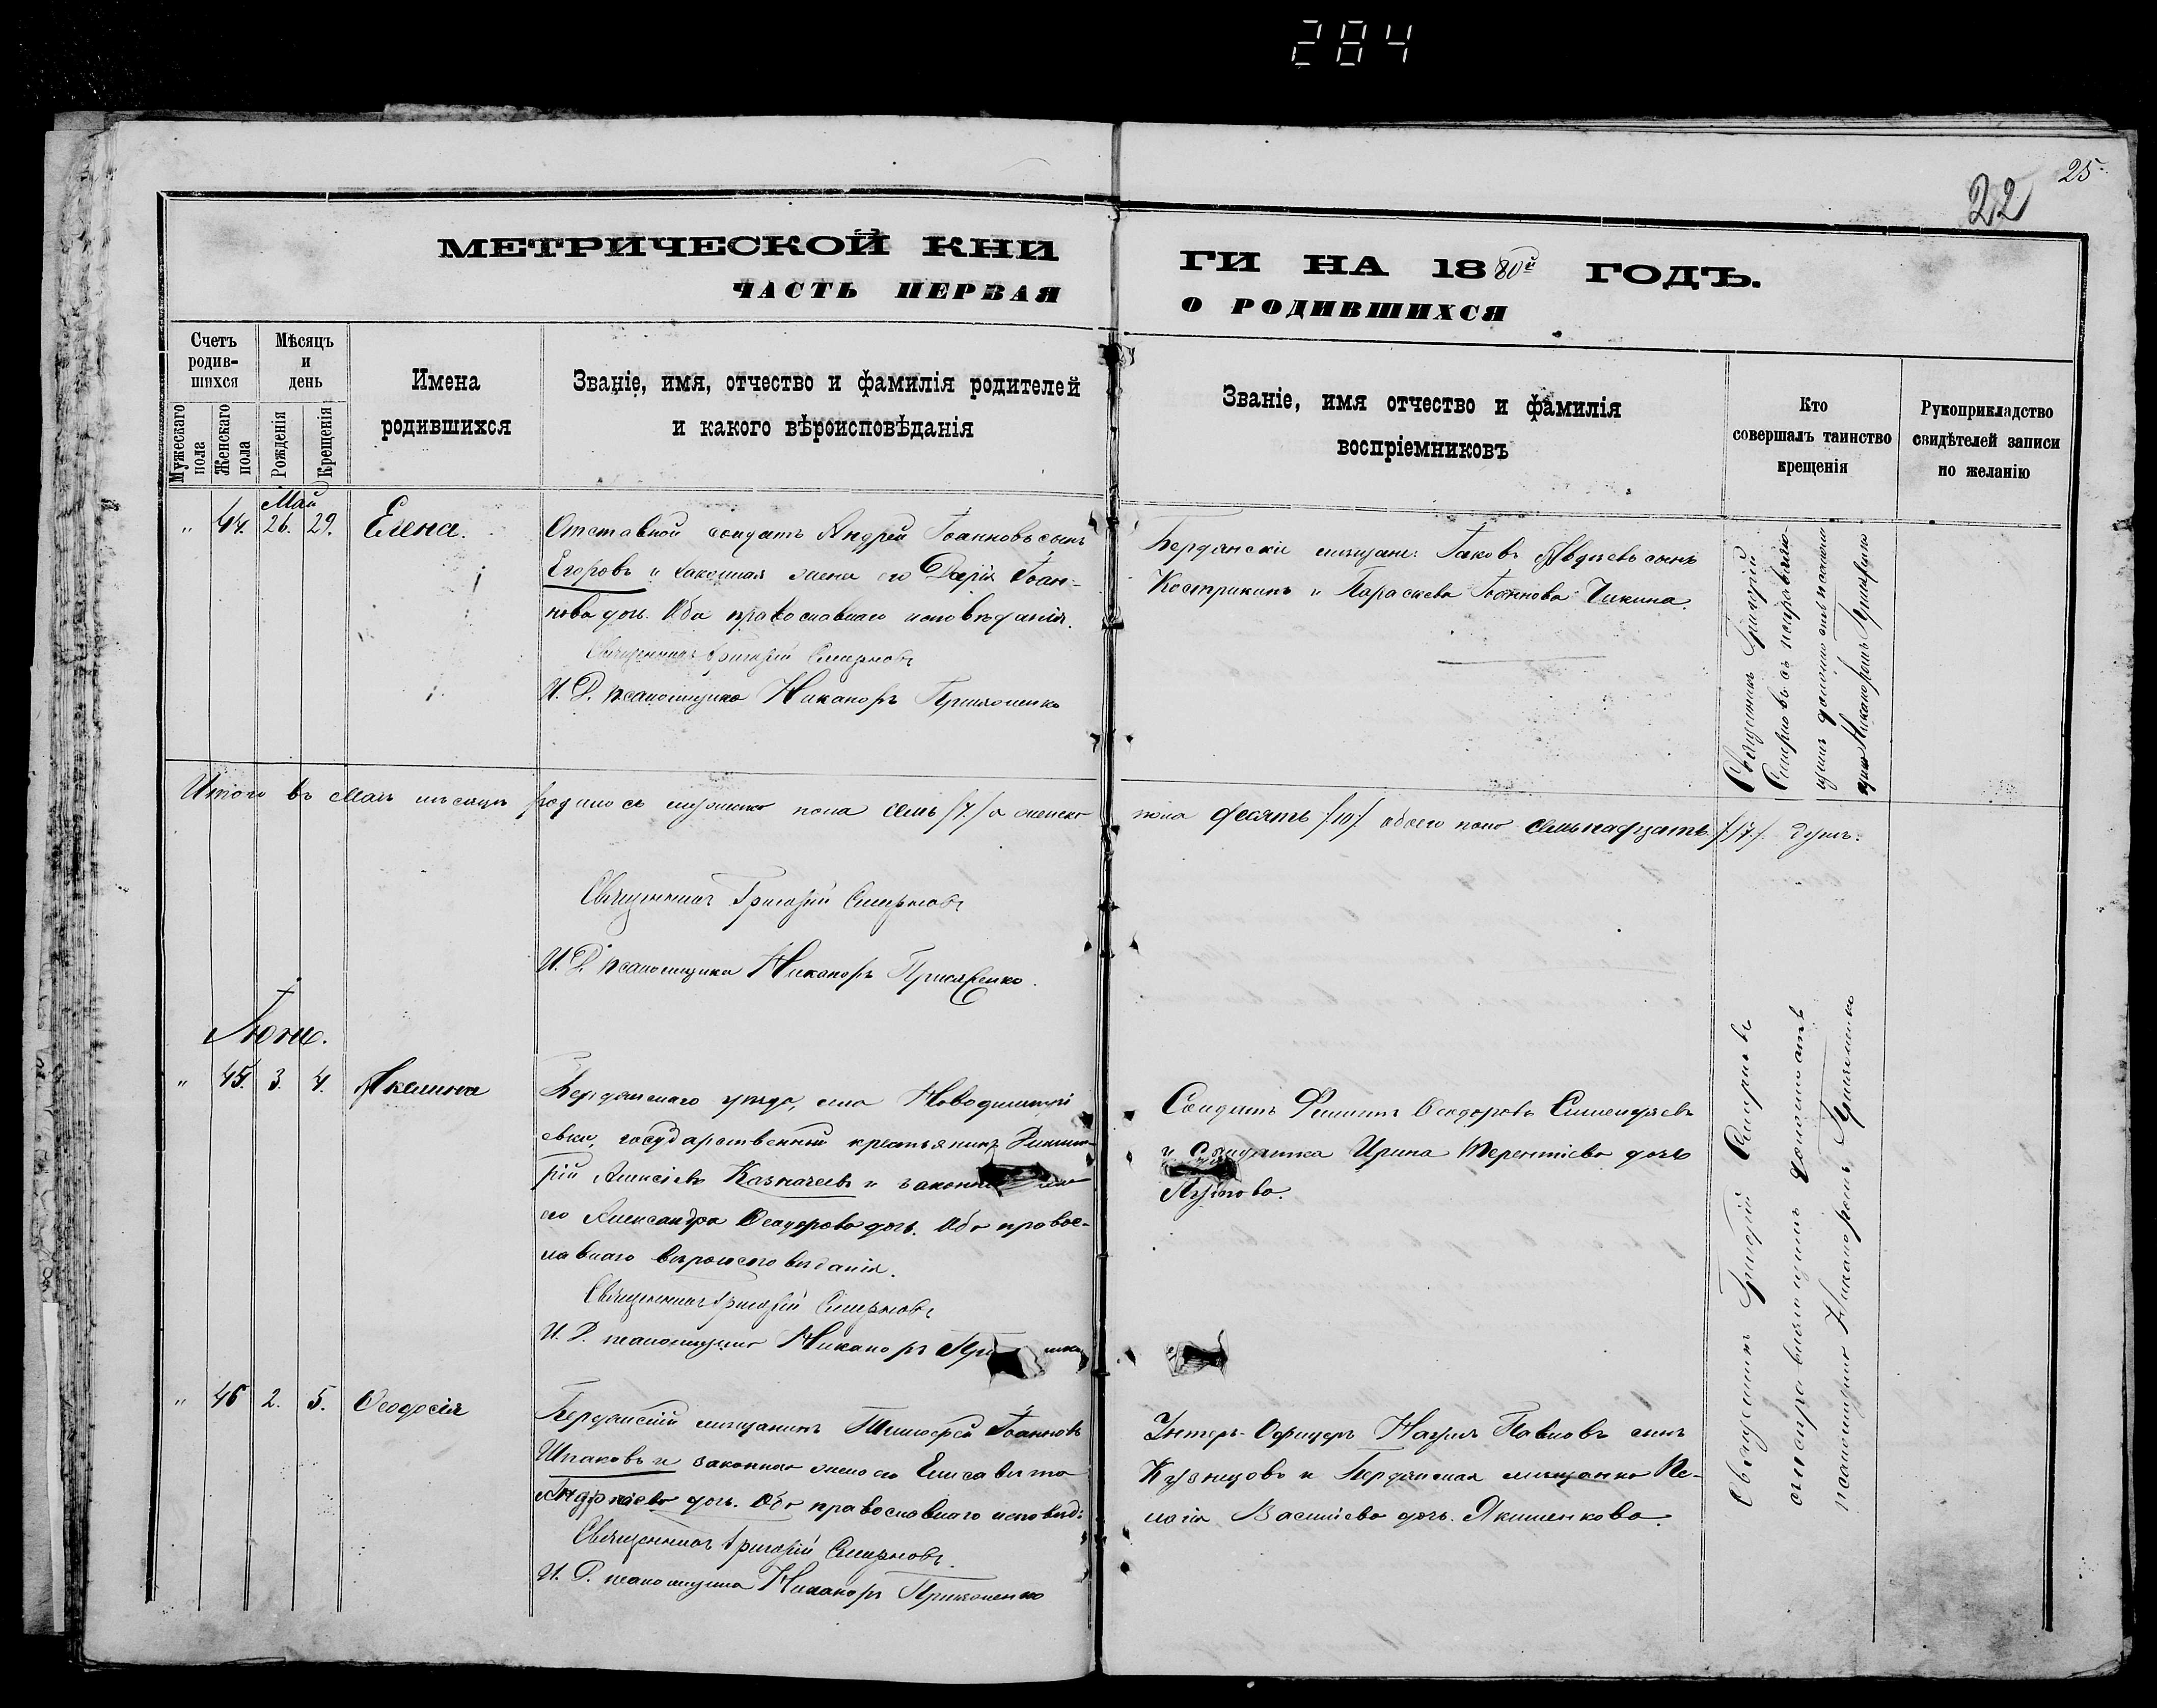 284
25
22
МЕТРИЧЕСКОЙ КНИ
ГИ НА 1880й ГОДЪ.
ЧАСТЬ ПЕРВАЯ
О РОДИВШИХСЯ
Счетъ родив-шихся
Мужескаго пола
Женскаго пола
Мѣсяцъ и день
Рожденія
Крещенія
Имена родившихся
Званіе, имя, отчество и фамилія родителей
и какого вѣроисповѣданія
Званіе, имя отчество и фамилія
воспріемниковъ
Кто
совершалъ таинство
крещенія
Рукоприкладство
свидѣтелей записи
по желанію
Май
" 44. 26. 29. Елена.
Отставной солдатъ Андрей Іоанновъ сынъ
Егоровъ и законная жена его Дарія Іоан-
нова дочь. Оба православнаго исповѣданія.
Священникъ Григорій Смирновъ
И. Д. псаломщика Никаноръ
Бердянскіе мещане: Іаковъ Авдіевъ сынъ
Кострикинъ и Параскева Іоаннова Чикина.
Священникъ Григорій
Смирновъ съ исправляю-
щимъ должность псаломщика
Никаноромъ
Итого въ Маѣ мѣсяцѣ родилось мужеска пола семь /7/ а женска
пола десять /10/ обоего пола семьнадцать /17/ душъ.
Священникъ Григорій Смирновъ
И. Д. псаломщика Никаноръ
Іюнь.
" 45. 3. 4. Акилина
Бердянскаго уѣзда, села Новодимитрі
евки, государственный крестьянинъ Димит-
рій Алексіевъ Казначеевъ и законная жена
его Александра Ѳеодорова дочь. Оба правос-
лавнаго вѣроисповѣданія.
Священникъ Григорій Смирновъ
И. Д. псаломщика Никаноръ
Солдатъ Филиппъ Ѳеодоровъ
и Солдатка Ирина Терентіева дочь
Священникъ Григорій Смирновъ
съ исправляющимъ должность
псаломщика Никаноромъ
" 46 2. 5. Ѳеодосія
Бердянскій мещанинъ Тимоѳей Іоанновъ
Шпаковъ и законная жена его Елисавета
Андреева дочь. Оба православнаго исповѣд:
Священникъ Григорій Смирновъ.
И. Д. псаломщика Никаноръ
Унтеръ-Офицеръ Наумъ Павловъ сынъ
Кузнецовъ и Бердянская мещанка Пе-
лагія Васильева дочь. Якименкова.